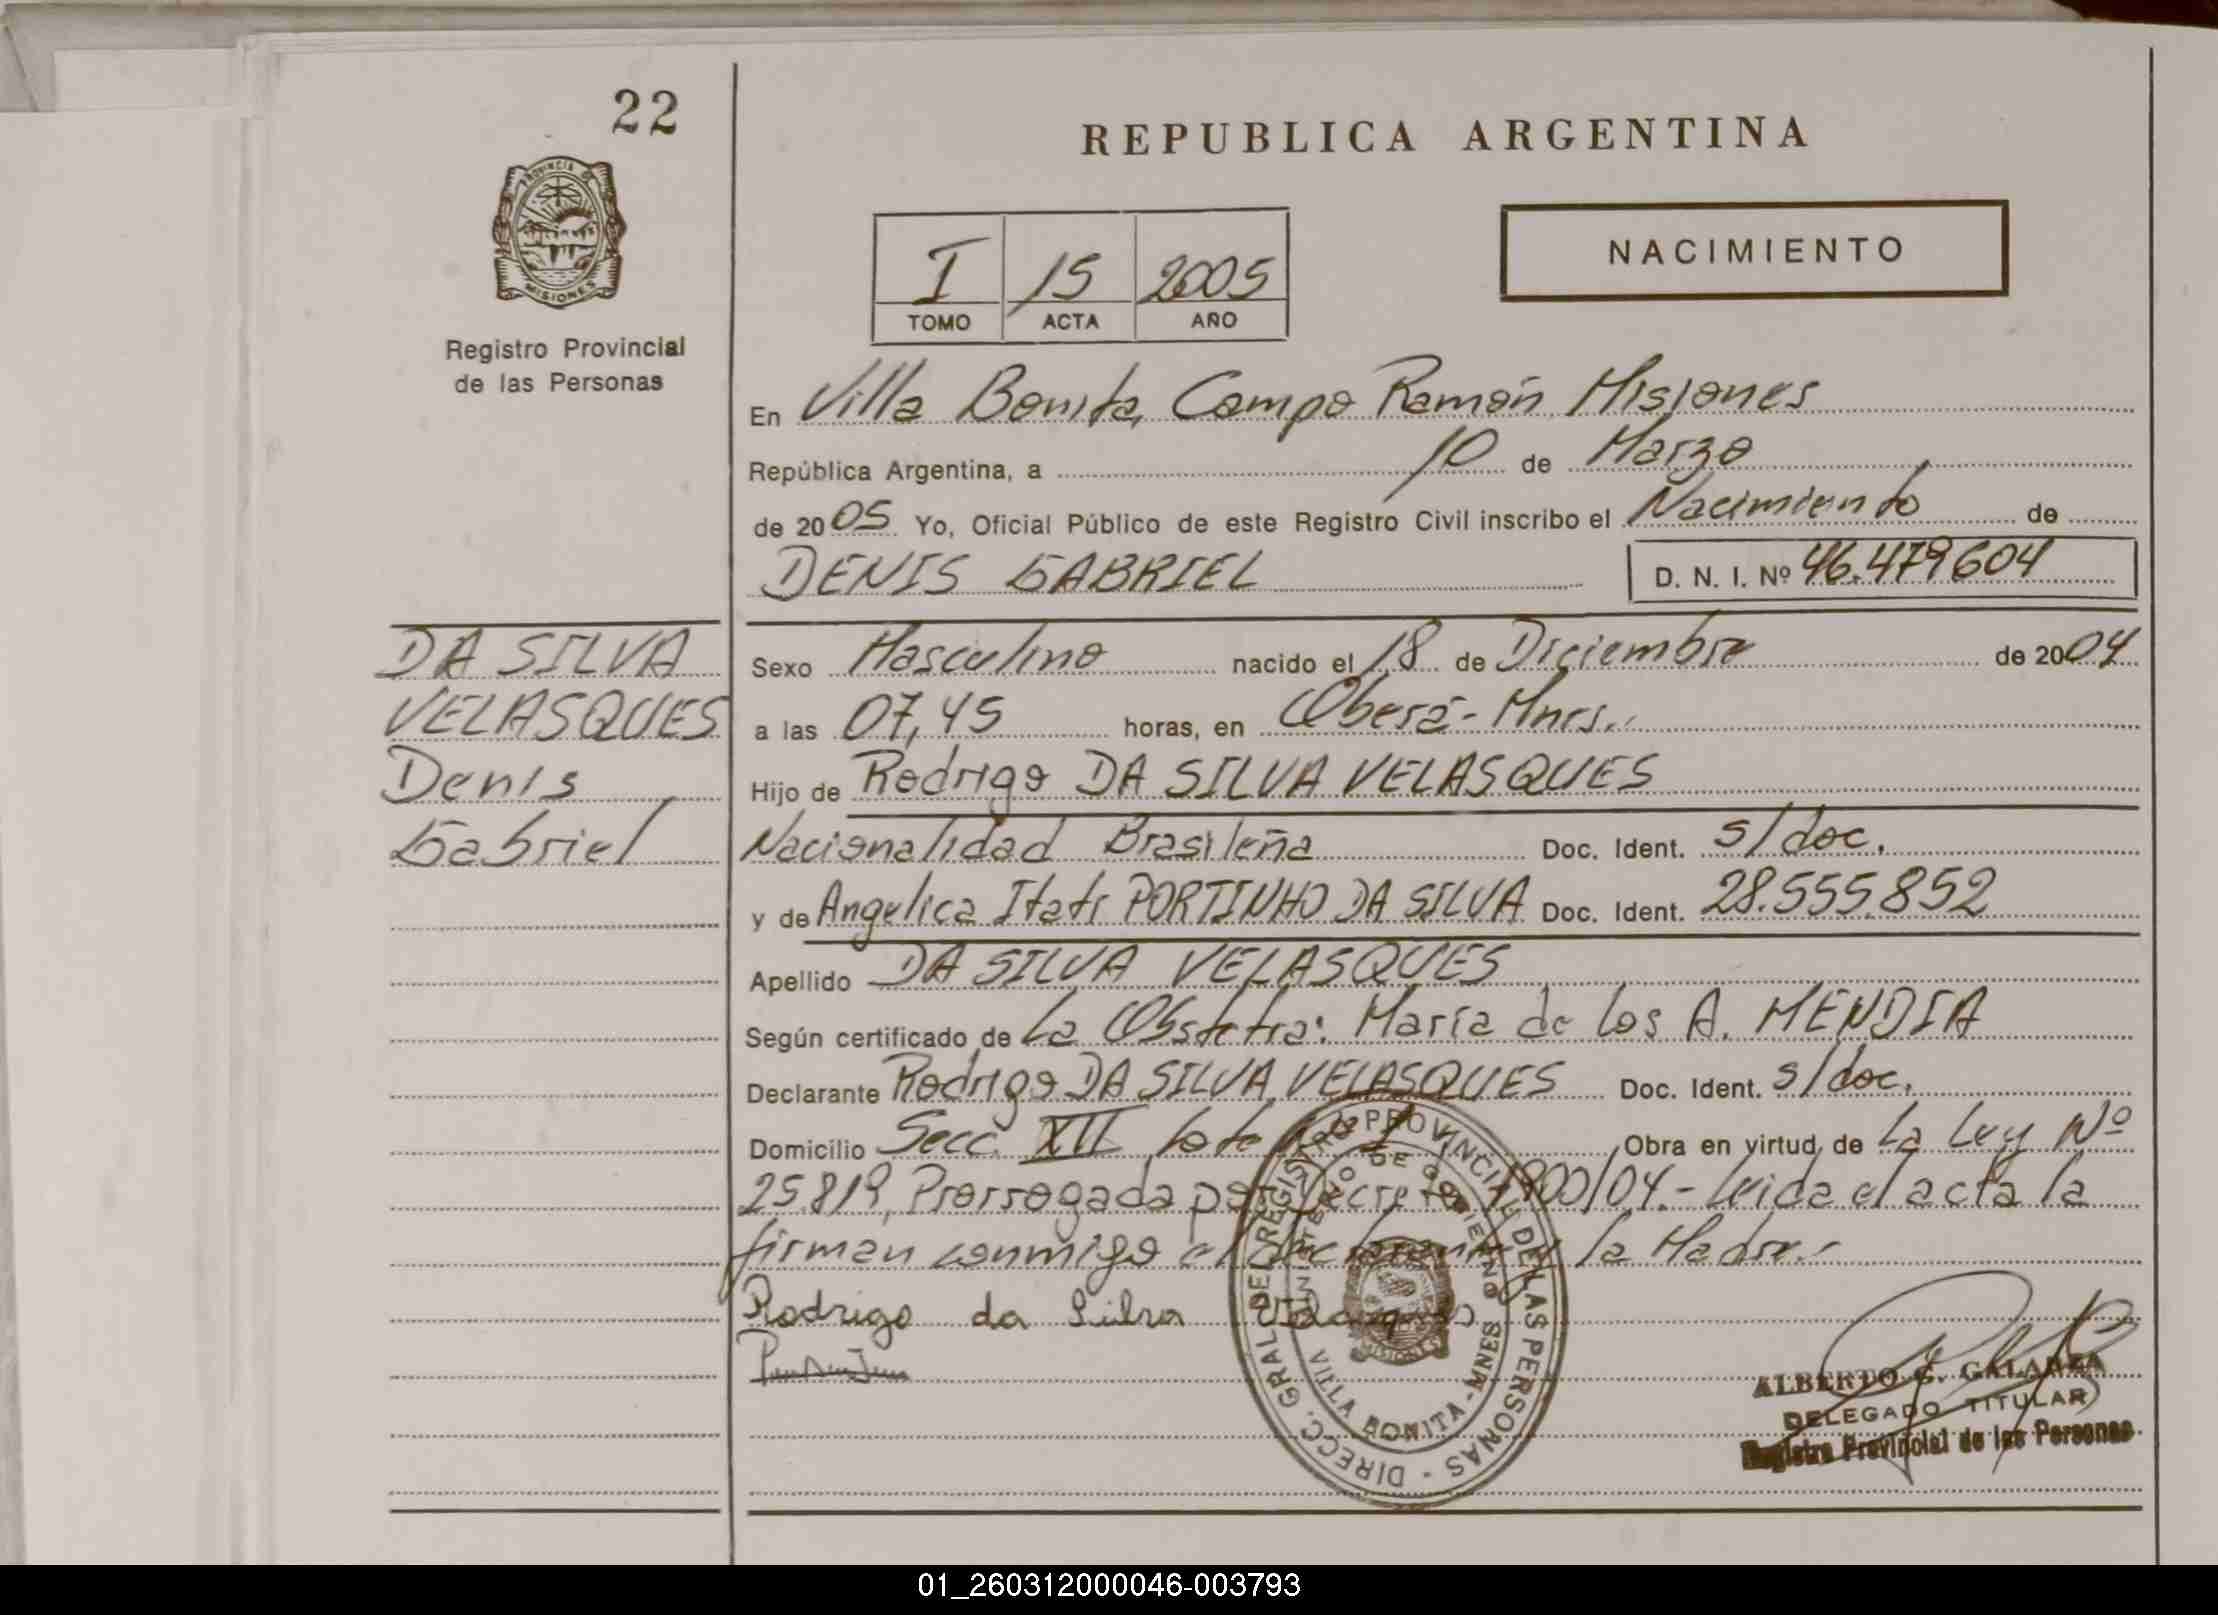 22
REPUBLICA ARGENTINA
PROVINCIA DE
MISIONES
Registro Provincial
de las Personas
NACIMIENTO
I 15 2005
TOMO ACTA AÑO
En Villa Bonita, Campo Ramón Misiones
República Argentina, a 10 de Marzo
de 2005 Yo, Oficial Público de este Registro Civil inscribo el Nacimiento de
DENIS GABRIEL D. N. I. Nº 46.479604
DA SILVA
VELASQUES
Denis
Gabriel
Sexo Masculino nacido el 18 de Diciembre de 2004
a las 07,45 horas, en Oberá - Mnes.
Hijo de Rodrigo DA SILVA VELASQUES
Nacionalidad Brasileña Doc. Ident. s/doc.
y de Angelica Itati PORTINHO DA SILVA Doc. Ident. 28.555.852
Apellido DA SILVA VELASQUES
Según certificado de La Obstetra: María de los A. MENDIA
Declarante Rodrigo DA SILVA VELASQUES Doc. Ident. s/doc.
Domicilio Secc. XII Lote Obra en virtud de La Ley Nº
25.819, Prorrogada por Decreto 1900/04.- Leida el acta la
firman conmigo el declarante y la Madre.
Rodrigo da Silva
DIRECC. GRAL DEL REGISTRO PROVINCIAL DE LAS PERSONAS
MINISTERIO DE GOBIERNO
VILLA BONITA - MNES
MISIONES
ALBERTO G. GALARZA
DELEGADO TITULAR
Registro Provincial de las Personas
01_260312000046-003793